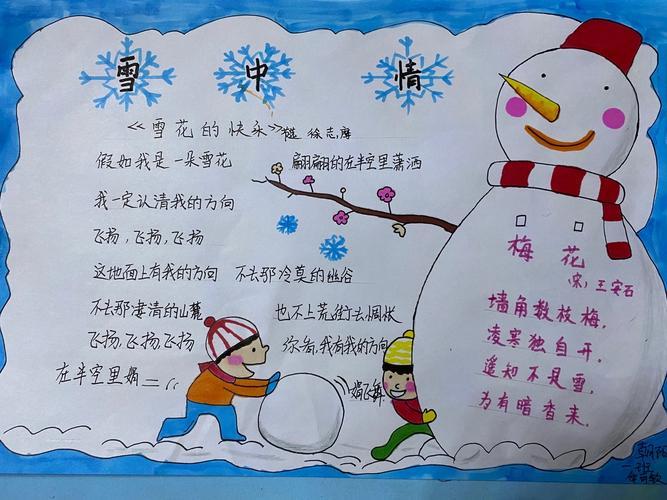 雪中情
《雪花的快乐》 徐志摩
假如我是一朵雪花
翩翩的在半空里潇洒
我一定认清我的方向
飞扬,飞扬,飞扬
这地面上有我的方向
不去那冷莫的幽谷
不去那凄清的山麓
也不上荒街去惆怅
飞扬,飞扬,飞扬
你看,我有我的方向
在半空里娟二
娟飞舞
梅花
宋:王安石
墙角数枝梅,
凌寒独自开.
遥知不是雪,
为有暗香来.
一班